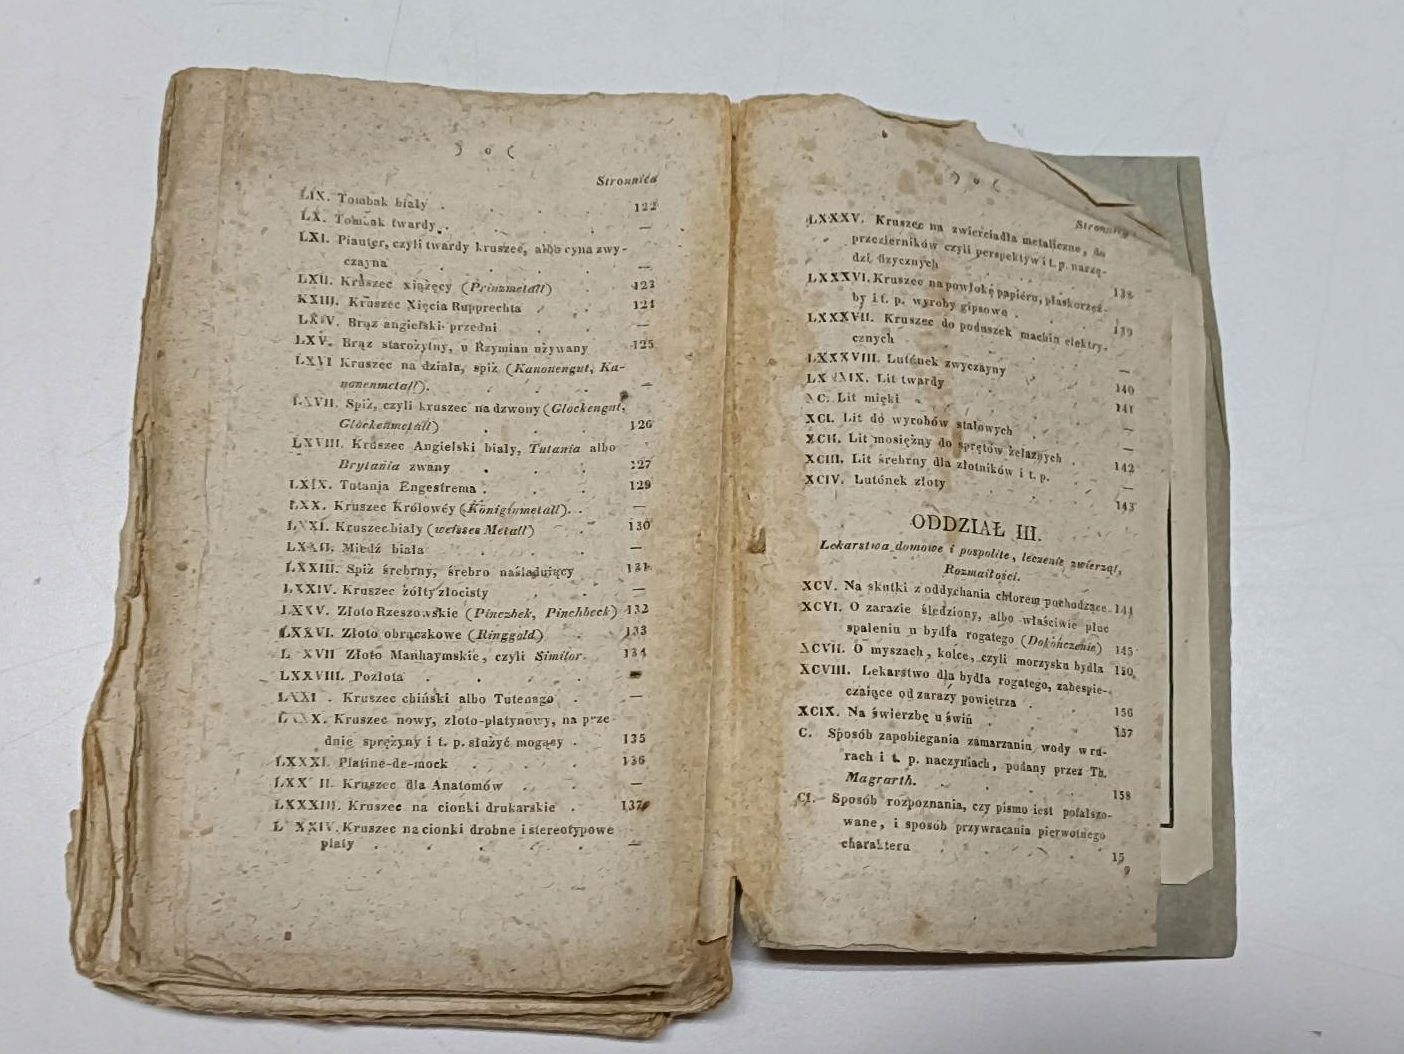 ) o (
Stronnica
LIX. Tombak biały . . . . 122
LX. Tombak twardy . . . . —
LXI. Piauter, czyli twardy kruszec, albo cyna zwy-
czayna . . . . —
LXII. Kruszec xiążęcy (Prinzmetall) . 123
KXIII. Kruszec Xięcia Rupprechta . . 124
LXIV. Brąz angielski przedni . . —
LXV. Brąz starożytny, u Rzymian używany 125
LXVI Kruszec na działa, spiż (Kanonengut, Ka-
nonenmetall). . . . . —
LXVII. Spiż, czyli kruszec na dzwony (Glockengut,
Glockenmetall) . . . 126
LXVIII. Kruszec Angielski biały, Tutania albo
Brytania zwany . . . 127
LXIX. Tutanja Engestrema . . . 129
LXX. Kruszec Królowéy (Königinmetall). . —
LXXI. Kruszec biały (weisses Metall) . 130
LXXII. Miedź biała . . . —
LXXIII. Spiż srebrny, śrebro naśladujący 131
LXXIV. Kruszec żółty złocisty . . —
LXXV. Złoto Rzeszowskie (Pinezbek, Pinchbeck) 132
LXXVI. Złoto obrączkowe (Ringgold) . 133
L XVII Złoto Manhaymskie, czyli Similor. 134
LXXVIII. Pozłota . . . . —
LXXI . Kruszec chiński albo Tutenago . —
L X. Kruszec nowy, złoto-platynowy, na prze-
dnie sprężyny i t. p. służyć mogący . 135
LXXXI. Platine-de-mock . . . 136
LXX II. Kruszec dla Anatomów . . —
LXXXIII. Kruszec na cionki drukarskie . 137
L XXIV. Kruszec na cionki drobne i stereotypowe
płaty . . . . . —
) o (
Stronnica
LXXXV. Kruszec na zwierciadła metaliczne, do
przezierników czyli perspektyw i t. p. narzę-
dzi fizycznych . . . . 138
LXXXVI. Kruszec na powłokę papiéru, płaskorzeź-
by i t. p. wyroby gipsowe . . . 139
LXXXVII. Kruszec do poduszek machin elektry-
cznych . . . . —
LXXXVIII. Lutónek zwyczayny . . 140
LX IX. Lit twardy . . . 141
XC. Lit mięki . . . —
XCI. Lit do wyrobów stalowych . . —
XCII. Lit mosiężny do sprętów żelaznych . 142
XCIII. Lit śrebrny dla złotników i t. p. . —
XCIV. Lutónek złoty . . . 143
ODDZIAŁ III.
Lekarstwa domowe i pospolite, leczenie zwierząt,
Rozmaitości.
XCV. Na skutki z oddychania chlorem pochodzące. 144
XCVI. O zarazie śledziony, albo właściwie płuc
spaleniu u bydła rogatego (Dokończenie) 145
XCVII. O myszach, kolce, czyli morzysku bydła 150
XCVIII. Lekarstwo dla bydła rogatego, zabespie-
czaiące od zarazy powietrza . . 156
XCIX. Na świerzbę u świń . . 157
C. Sposób zapobiegania zamarzaniu wody w ru-
rach i t. p. naczyniach, podany przez Th.
Magrarth. . . . . 158
CI. Sposób rozpoznania, czy pismo iest pofałszo-
wane, i sposób przywracania pierwotnego
charakteru . . . . 15
9